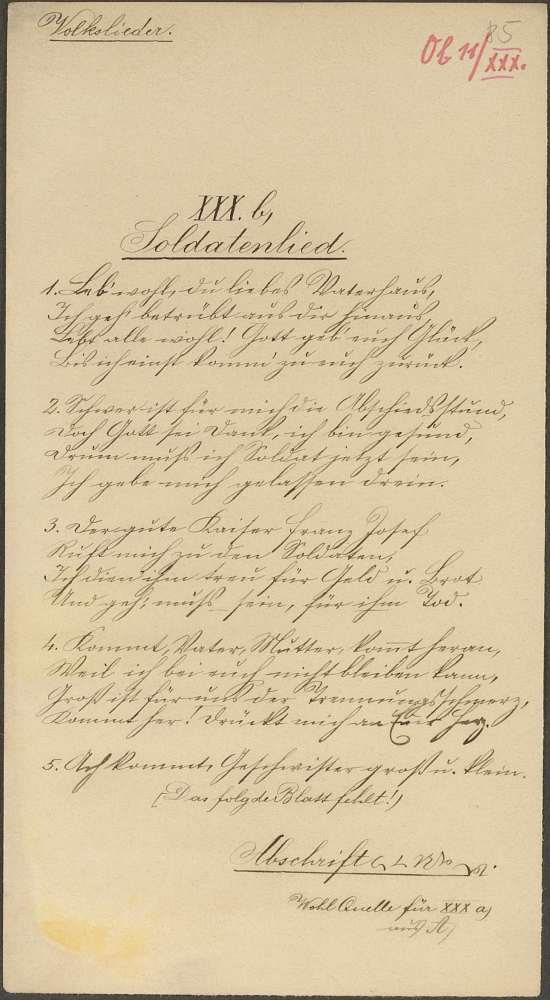 Volkslieder.
85
Ob 11/XXX.
XXX. b,
Soldatenlied.
1. Leb' wohl, du liebes Vaterhaus,
Ich geh' betrübt aus dir hinaus,
Lebt alle wohl! Gott geb' euch Glück,
Bis ich einst komm' zu euch zurück.
2. Schwer ist für mich die Abschiedsstund,
Doch Gott sei Dank, ich bin gesund,
Drum muß ich Soldat jetzt sein,
Ich gebe mich gelassen drein.
3. Der gute Kaiser Franz Josef
Ruft mich zu den Soldaten,
Ich dien' ihm treu für Geld u. Brot
Und geh', muß sein, für ihm Tod.
4. Kommt, Vater, Mutter, kom̄t heran,
Weil ich bei euch nicht bleiben kann,
Groß ist für uns der Trennungsschmerz,
Kommt her! Drückt mich an Euer Herz.
5. Ach kommt, Geschwister groß u. klein.
(Das folgde Blatt fehlt!)
Abschrift
Wohl Quelle für XXX a)
aus A)